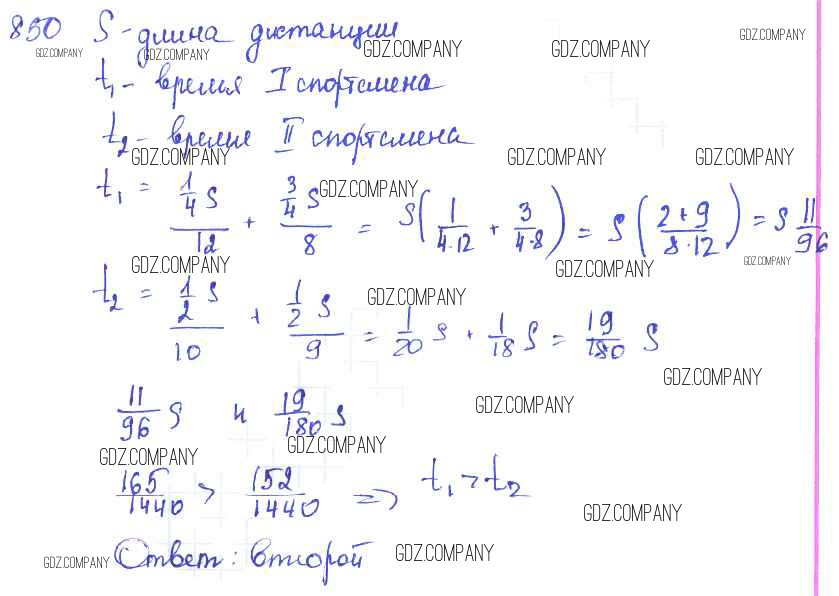 850 S - длина дистанции
GDZ.COMPANY GDZ.COMPANY GDZ.COMPANY GDZ.COMPANY GDZ.COMPANY
t₁ - время I спортсмена
t₂ - время II спортсмена
GDZ.COMPANY GDZ.COMPANY GDZ.COMPANY
t₁ = (1/4 S)/12 + (3/4 S)/8 = S(1/(4·12) + 3/(4·8)) = S((2+9)/(8·12)) = S 11/96
GDZ.COMPANY
GDZ.COMPANY GDZ.COMPANY GDZ.COMPANY
t₂ = (1/2 S)/10 + (1/2 S)/9 = 1/20 S + 1/18 S = 19/180 S
GDZ.COMPANY
GDZ.COMPANY
11/96 S и 19/180 S
GDZ.COMPANY
GDZ.COMPANY GDZ.COMPANY
165/1440 > 152/1440 => t₁ > t₂
GDZ.COMPANY
Ответ: второй
GDZ.COMPANY GDZ.COMPANY